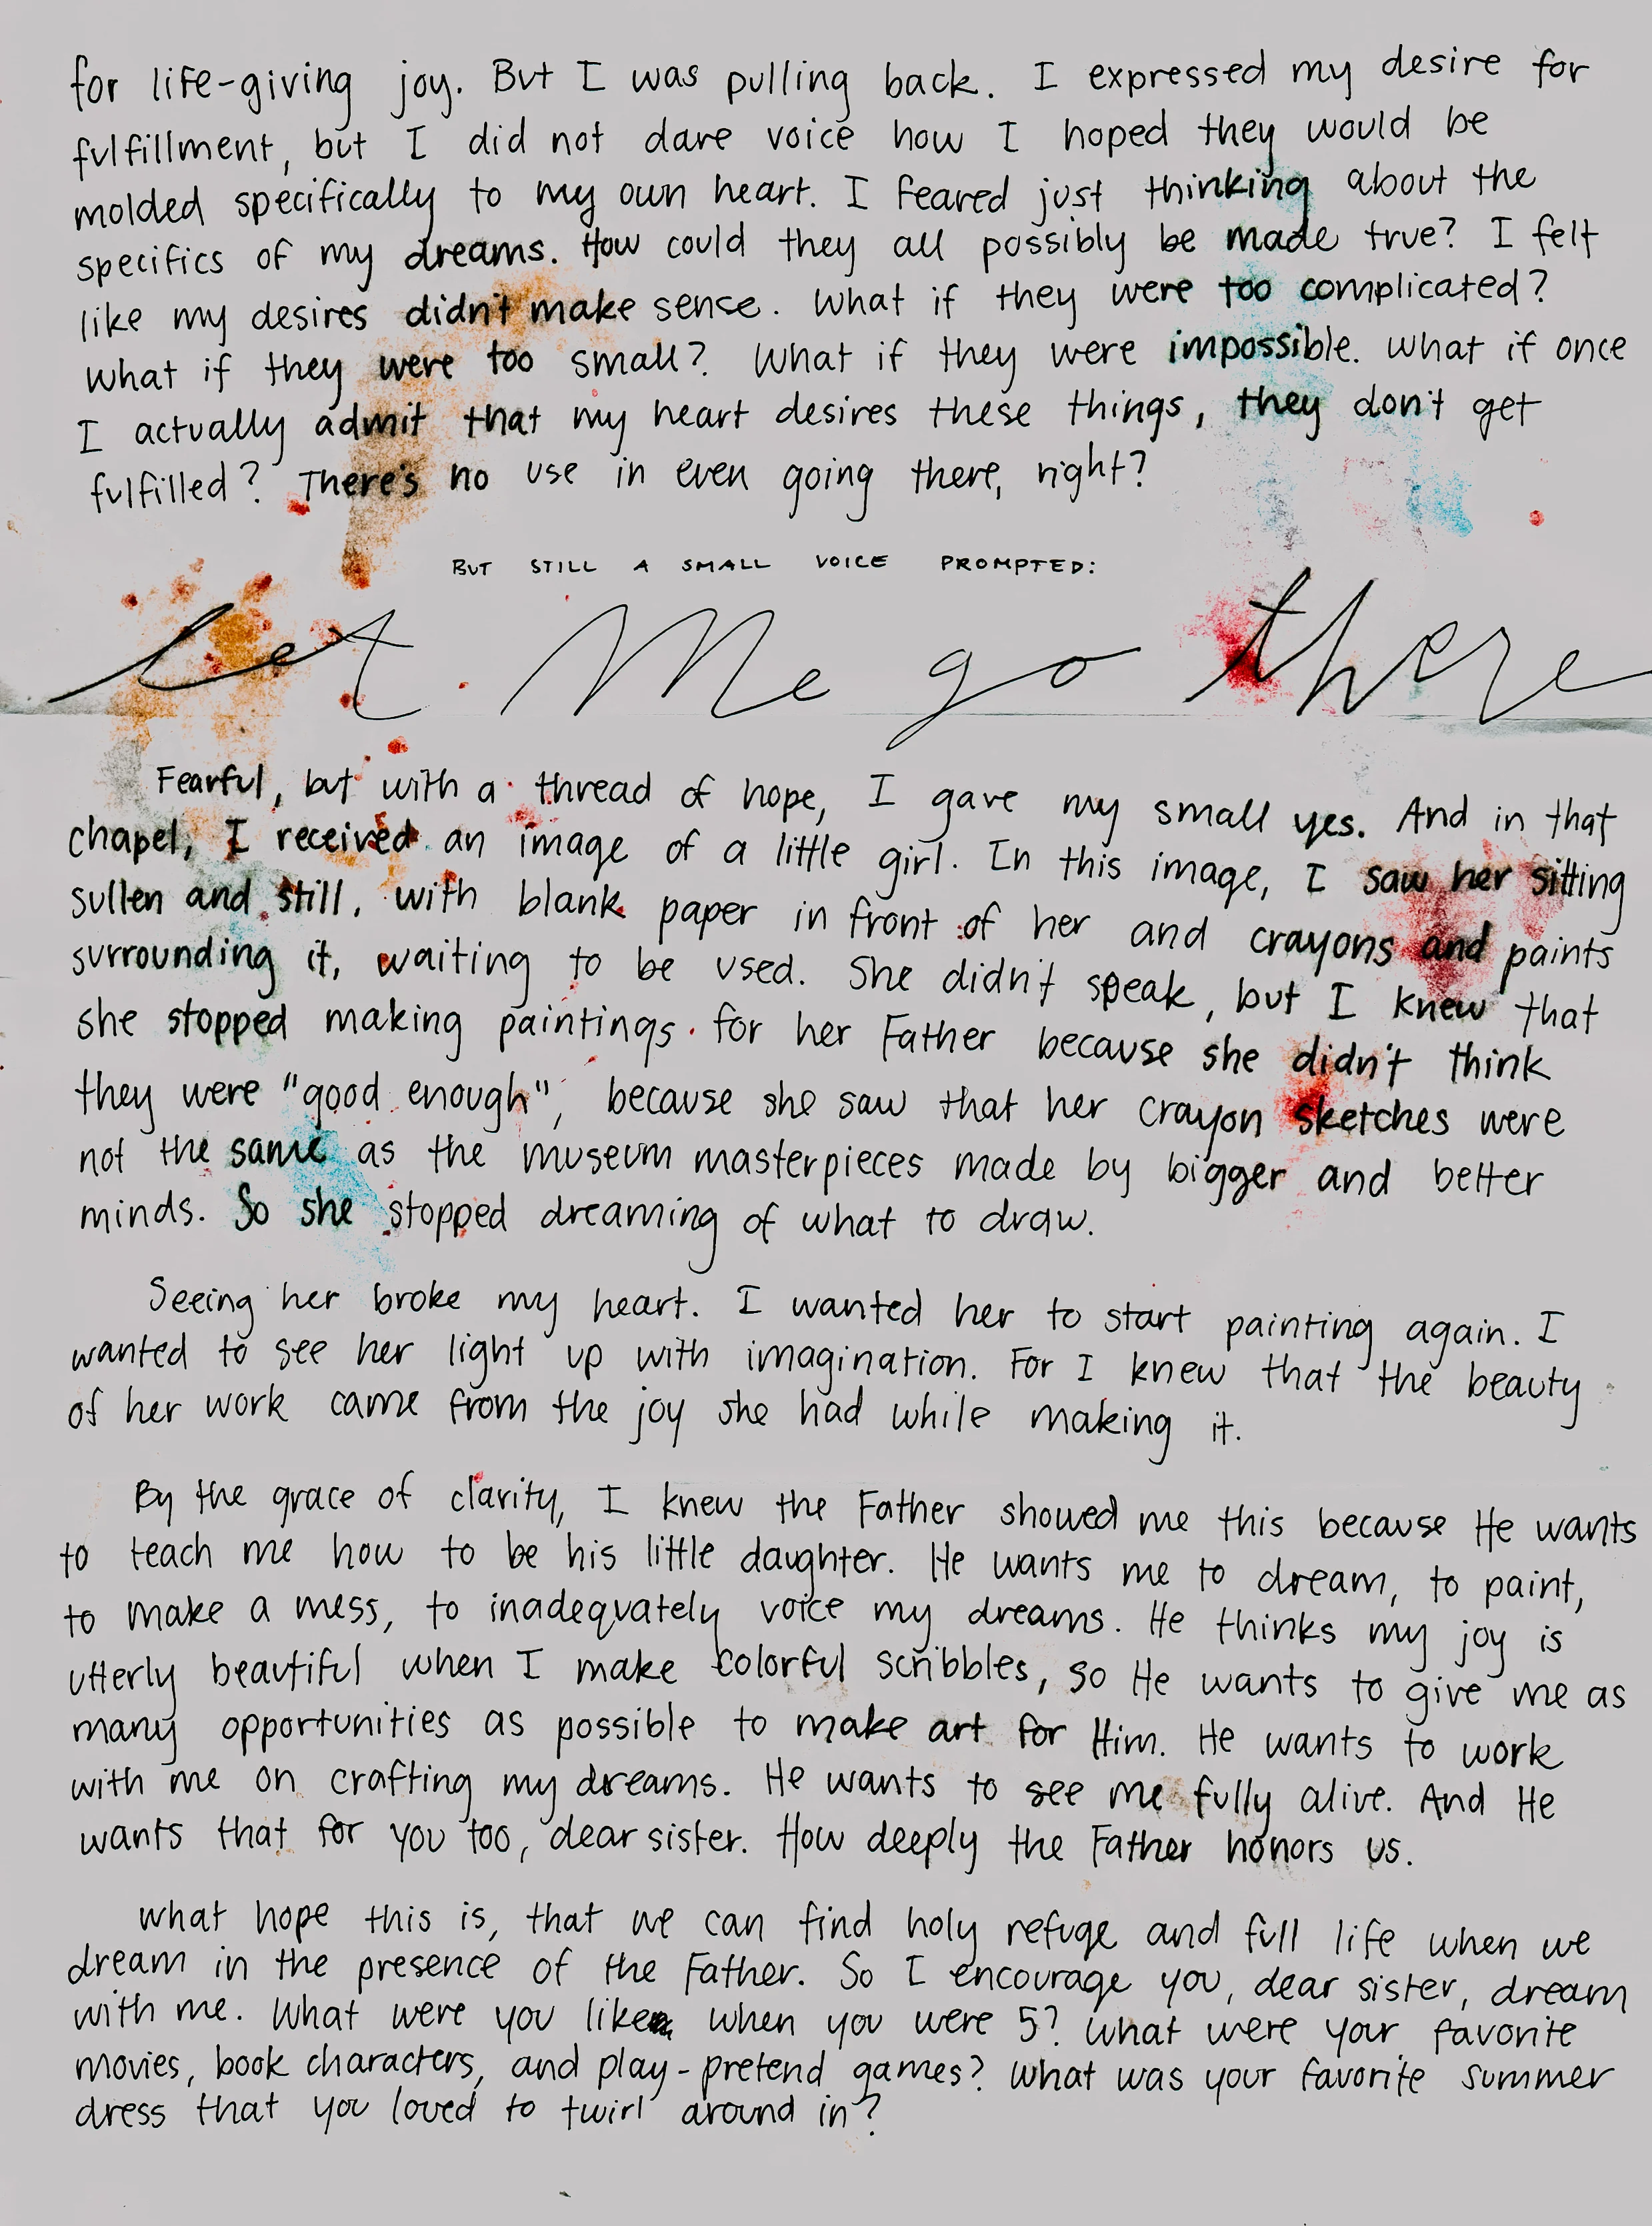 for life-giving joy. But I was pulling back. I expressed my desire for
fulfillment, but I did not dare voice how I hoped they would be
molded specifically to my own heart. I feared just thinking about the
specifics of my dreams. How could they all possibly be made true? I felt
like my desires didn't make sense. What if they were too complicated?
What if they were too small? What if they were impossible. What if once
I actually admit that my heart desires these things, they don't get
fulfilled? There's no use in even going there, right?
BUT STILL A SMALL VOICE PROMPTED:
let Me go there
Fearful, but with a thread of hope, I gave my small yes. And in that
chapel, I received an image of a little girl. In this image, I saw her sitting
sullen and still, with blank paper in front of her and crayons and paints
surrounding it, waiting to be used. She didn't speak, but I knew that
she stopped making paintings for her Father because she didn't think
they were "good enough", because she saw that her crayon sketches were
not the same as the museum masterpieces made by bigger and better
minds. So she stopped dreaming of what to draw.
Seeing her broke my heart. I wanted her to start painting again. I
wanted to see her light up with imagination. For I knew that the beauty
of her work came from the joy she had while making it.
By the grace of clarity, I knew the Father showed me this because He wants
to teach me how to be his little daughter. He wants me to dream, to paint,
to make a mess, to inadequately voice my dreams. He thinks my joy is
utterly beautiful when I make colorful scribbles, so He wants to give me as
many opportunities as possible to make art for Him. He wants to work
with me on crafting my dreams. He wants to see me fully alive. And He
wants that for you too, dear sister. How deeply the Father honors us.
What hope this is, that we can find holy refuge and full life when we
dream in the presence of the Father. So I encourage you, dear sister, dream
with me. What were you like when you were 5? What were your favorite
movies, book characters, and play-pretend games? What was your favorite summer
dress that you loved to twirl around in?